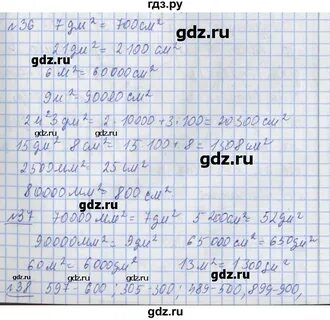 gdz.ru
№36 7 дм² = 700 см²
gdz.ru gdz.ru
21 дм² = 2100 см²
6 м² = 60000 см²
9 м² = 90020 см²
gdz.ru gdz.ru
2 м² 3 дм² = 2 · 10000 + 3 · 100 = 20300 см²
15 дм² 8 см² = 15 · 100 + 8 = 1508 см²
2500 мм² = 25 см²
80000 мм² = 800 см²
№37 70000 мм² = 7 дм² 5200 см² = 52 дм²
90000 мм² = 9 дм² 65000 см² = 650 дм²
60 м² = 6000 дм² 13 м² = 1300 дм²
№38 597-600; 305-300; 489-500, 899-900,
gdz.ru